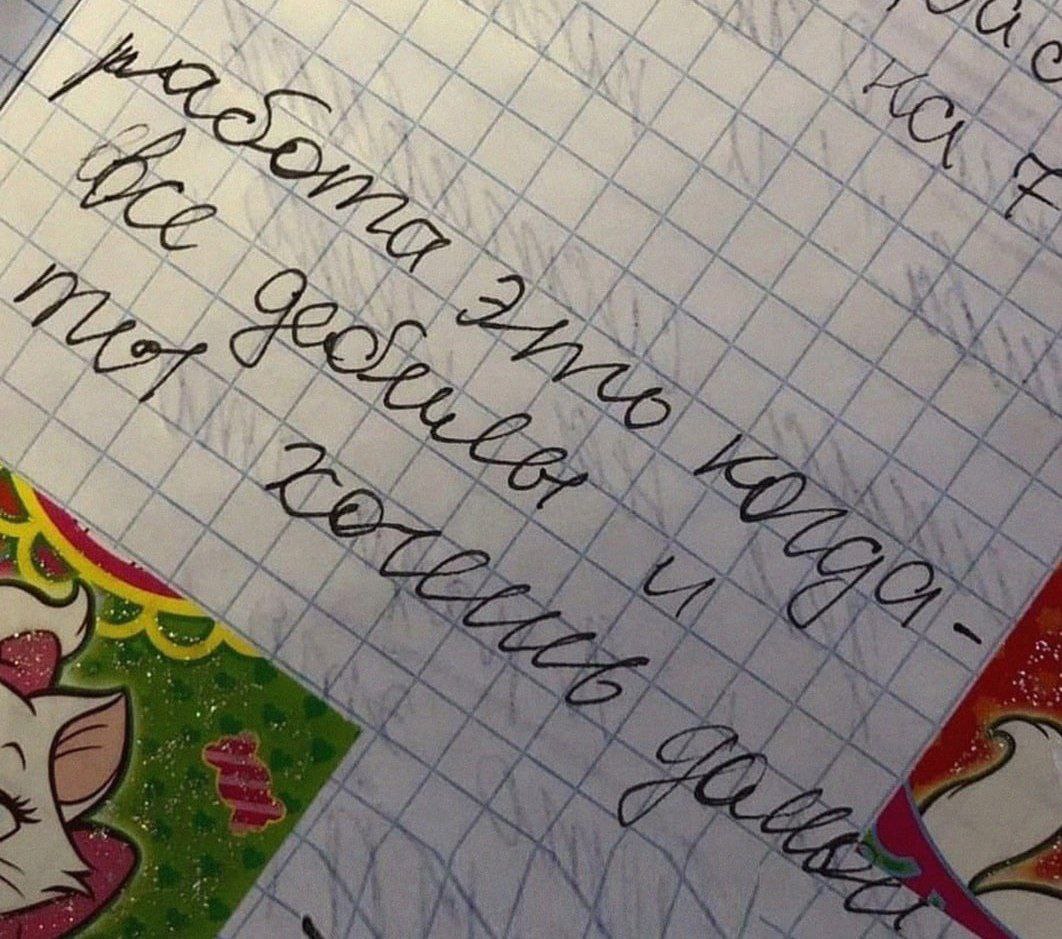 на 7
работа это когда-
все дебилы и
ты хочешь